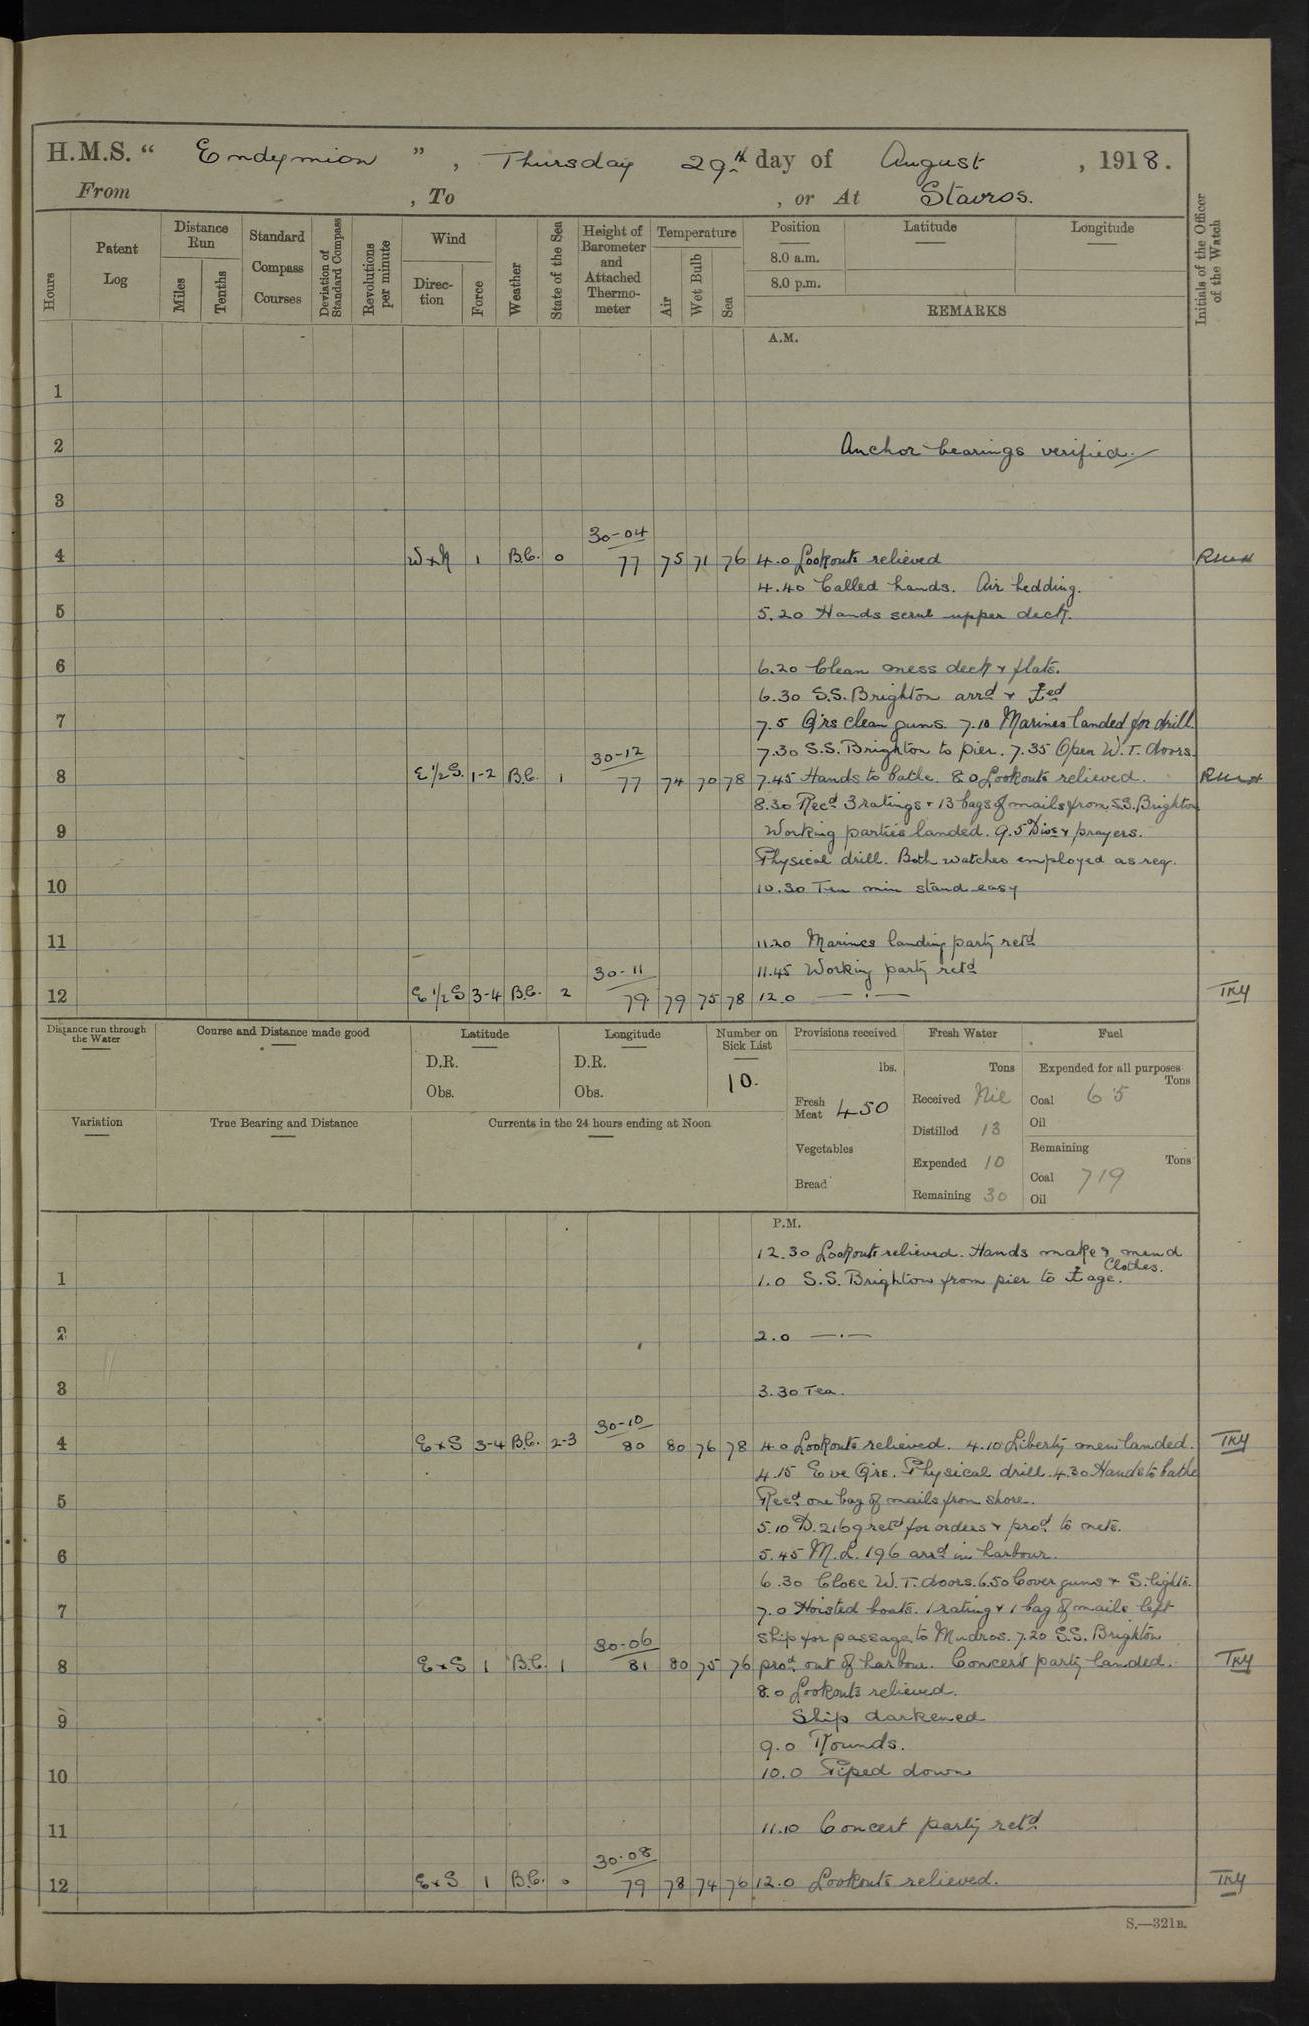 H.M.S. “ Endymion ” , Thursday 29th day of August , 1918.
From , To , or At Stavros.
Hours
Patent Log
Distance Run
Miles
Tenths
Standard Compass Courses
Deviation of Standard Compass
Revolutions per minute
Wind
Direction
Force
Weather
State of the Sea
Height of Barometer and Attached Thermometer
Temperature
Air
Wet Bulb
Sea
Position
8.0 a.m.
8.0 p.m.
Latitude
Longitude
REMARKS
Initials of the Officer of the Watch
A.M.
1
2 Anchor bearings verified.
3
30-04
4 W x N 1 B.C. 0 77 75 71 76 4.0 Lookouts relieved
4.40 Called hands. Air bedding.
5 5.20 Hands scrub upper deck.
6 6.20 Clean mess deck & flats.
6.30 S.S. Brighton arrd & ⚓ed
7 7.5 Qrs clean guns. 7.10 Marines landed for drill.
30-12 7.30 S.S. Brighton to pier. 7.35 Open W.T. doors.
8 E ½ S. 1-2 B.C. 1 77 74 70 78 7.45 Hands to bathe. 8.0 Lookouts relieved.
8.30 Recd 3 ratings & 13 bags of mails from S.S. Brighton
9 Working parties landed. 9.5 Divs & prayers.
Physical drill. Both watches employed as req.
10 10.30 Ten min stand easy
11 11.20 Marines landing party retd
30-11 11.45 Working party retd
12 E ½ S 3-4 B.C. 2 79 79 75 78 12.0 — · — TKY
Distance run through the Water
Course and Distance made good
Latitude
D.R.
Obs.
Longitude
D.R.
Obs.
Number on Sick List
10.
Provisions received
lbs.
Fresh Meat 450
Vegetables
Bread
Fresh Water
Tons
Received Nil
Distilled 13
Expended 10
Remaining 30
Fuel
Expended for all purposes
Tons
Coal 65
Oil
Remaining
Tons
Coal 719
Oil
Variation
True Bearing and Distance
Currents in the 24 hours ending at Noon
P.M.
12.30 Lookouts relieved. Hands make & mend Clothes.
1 1.0 S.S. Brighton from pier to ⚓age.
2 2.0 — · —
3 3.30 Tea.
30-10
4 E x S 3-4 B.C. 2-3 80 80 76 78 4.0 Lookouts relieved. 4.10 Liberty men landed. TKY
4.15 Eve Qrs. Physical drill. 4.30 Hands to bathe
5 Recd one bag of mails from shore.
5.10 D. 2169 retd for orders & procd to nets.
6 5.45 M.L. 196 arrd in harbour.
6.30 Close W.T. doors. 6.50 Cover guns & S. lights.
7 7.0 Hoisted boats. 1 rating & 1 bag of mails left
30-06 ship for passage to Mudros. 7.20 S.S. Brighton
8 E x S 1 B.C. 1 81 80 75 76 procd out of harbour. Concert party landed. TKY
8.0 Lookouts relieved.
9 Ship darkened
9.0 Rounds.
10 10.0 Piped down
11 11.10 Concert party retd
30.08
12 E x S 1 B.C. 0 79 78 74 76 12.0 Lookouts relieved. TKY
S.—321B.